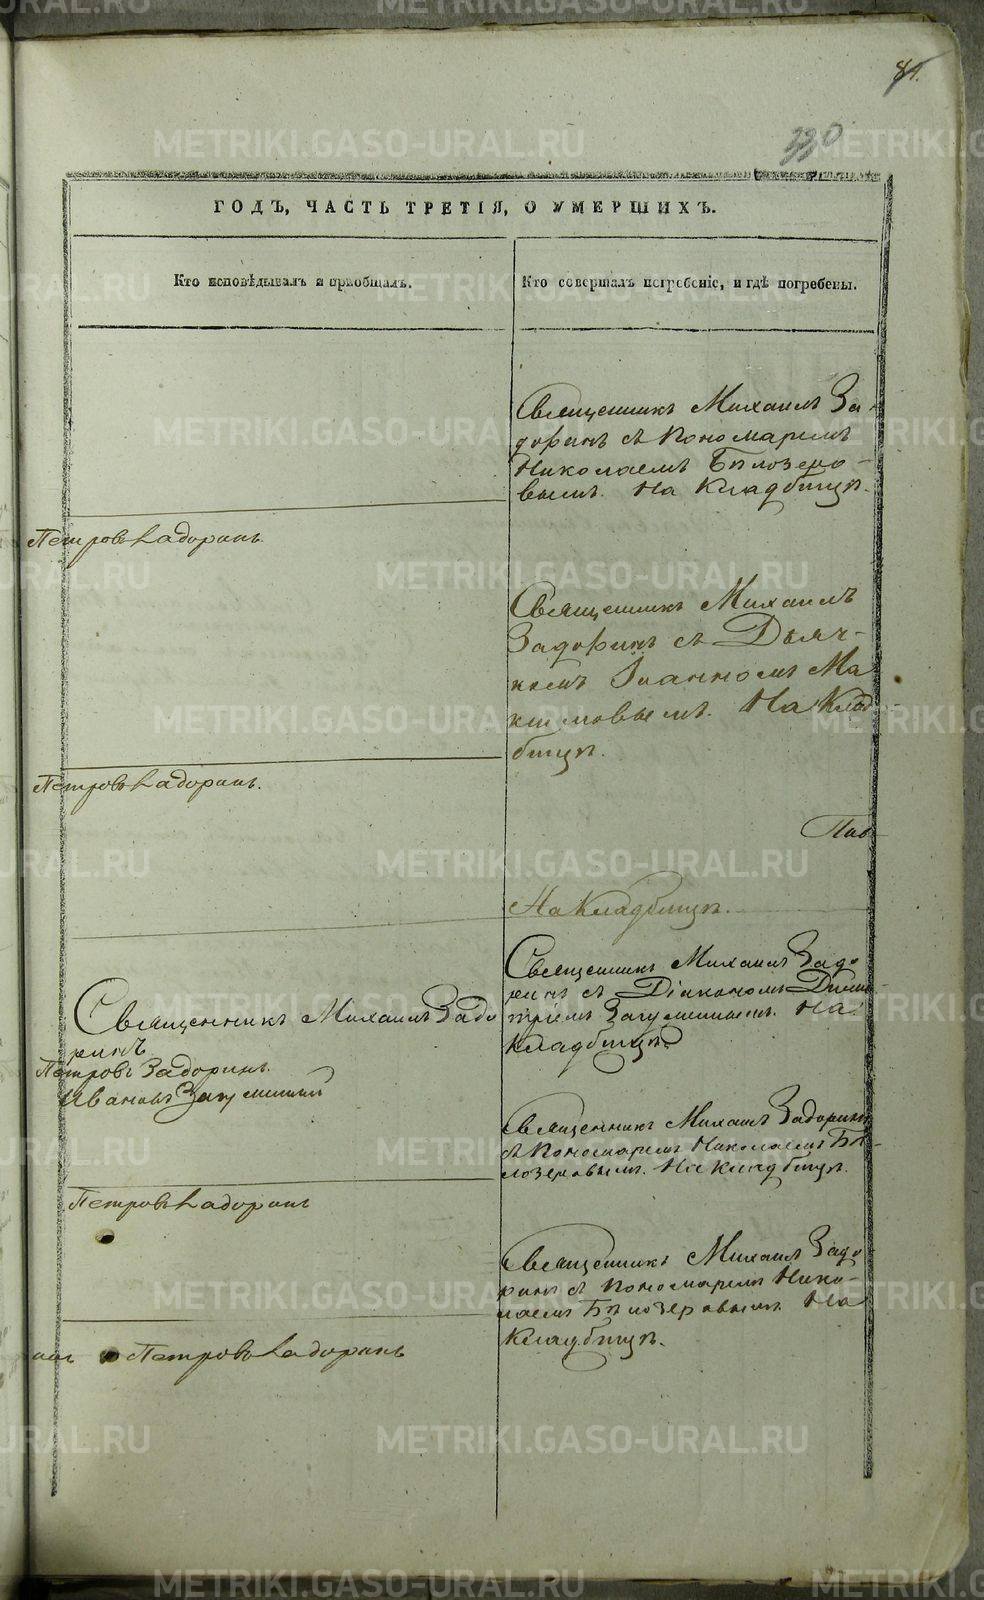 81.
330
ГОДЪ, ЧАСТЬ ТРЕТІЯ, О УМЕРШИХЪ.
Кто исповѣдывалъ и пріобщалъ.
Кто совершалъ погребеніе, и гдѣ погребены.
Священникъ Михаилъ За-
доринъ съ Пономаремъ
Николаемъ Бѣлозеро-
вымъ. На Кладбищѣ.
Петровъ Задоринъ.
Священникъ Михаилъ
Задоринъ съ Дьяч-
комъ Іоанномъ Ма
ксимовымъ. На Клад
бищѣ.
Петровъ Задоринъ.
На Кладбищѣ.
Священникъ Михаилъ Задо
ринъ съ Діакономъ Дими
тріемъ Загуминнымъ. На
Кладбищѣ
Священникъ Михаилъ Задо
ринъ
Петровъ Задоринъ.
Ивановъ
Священникъ Михаилъ Задоринъ
съ Пономаремъ Николаемъ Бѣ-
лозеровымъ. На кладбищѣ.
Петровъ Задоринъ
Священникъ Михаилъ Задо
ринъ съ Пономаремъ Нико-
лаемъ Бѣлозеровымъ. На
Кладбищѣ.
Петровъ Задоринъ
METRIKI.GASO-URAL.RU